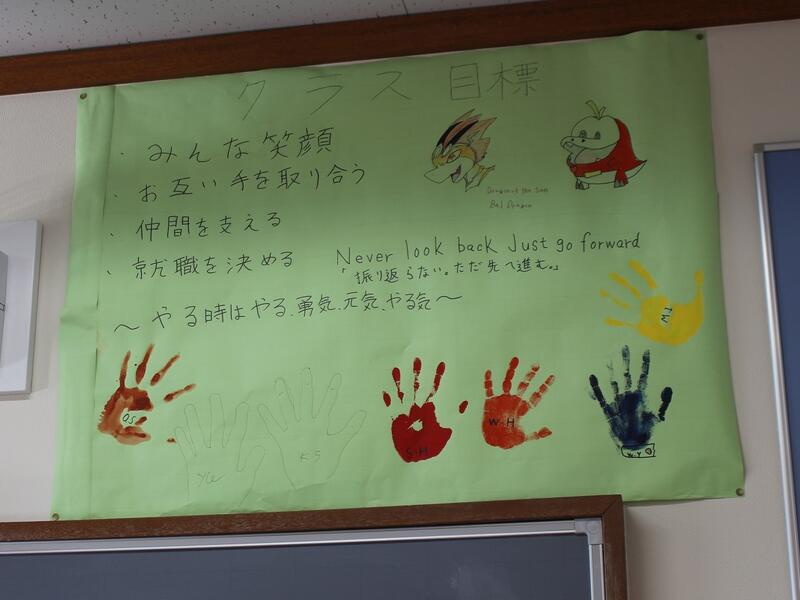 クラス目標
・みんな笑顔
・お互い手を取り合う
・仲間を支える
・就職を決める
Never look back Just go forward
「振り返らない。ただ先へ進む。」
～やる時はやる、勇気、元気、やる気～
Dragon of the Sun
Bal Dragon
TW
OS
YU
KS
S-H
W-H
W-Y